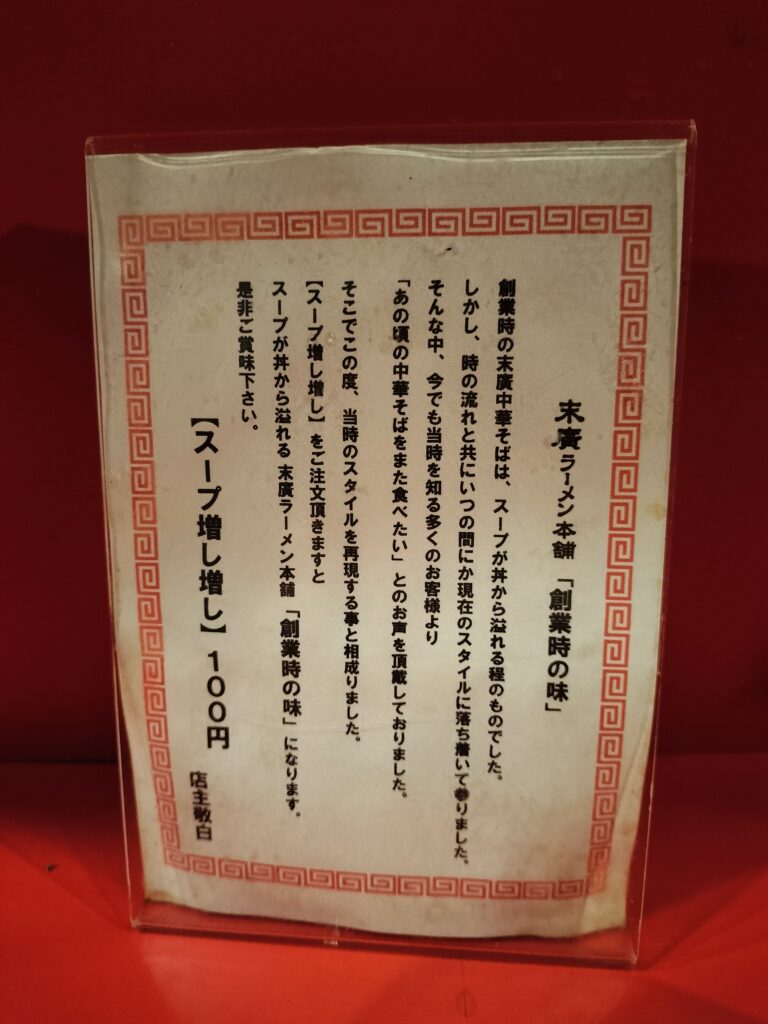 末廣ラーメン本舗 「創業時の味」
創業時の末廣中華そばは、スープが丼から溢れる程のものでした。
しかし、時の流れと共にいつの間にか現在のスタイルに落ち着いて参りました。
そんな中、今でも当時を知る多くのお客様より
「あの頃の中華そばをまた食べたい」とのお声を頂戴しておりました。
そこでこの度、当時のスタイルを再現する事と相成りました。
【スープ増し増し】をご注文頂きますと
スープが丼から溢れる 末廣ラーメン本舗 「創業時の味」になります。
是非ご賞味下さい。
【スープ増し増し】 100円
店主敬白